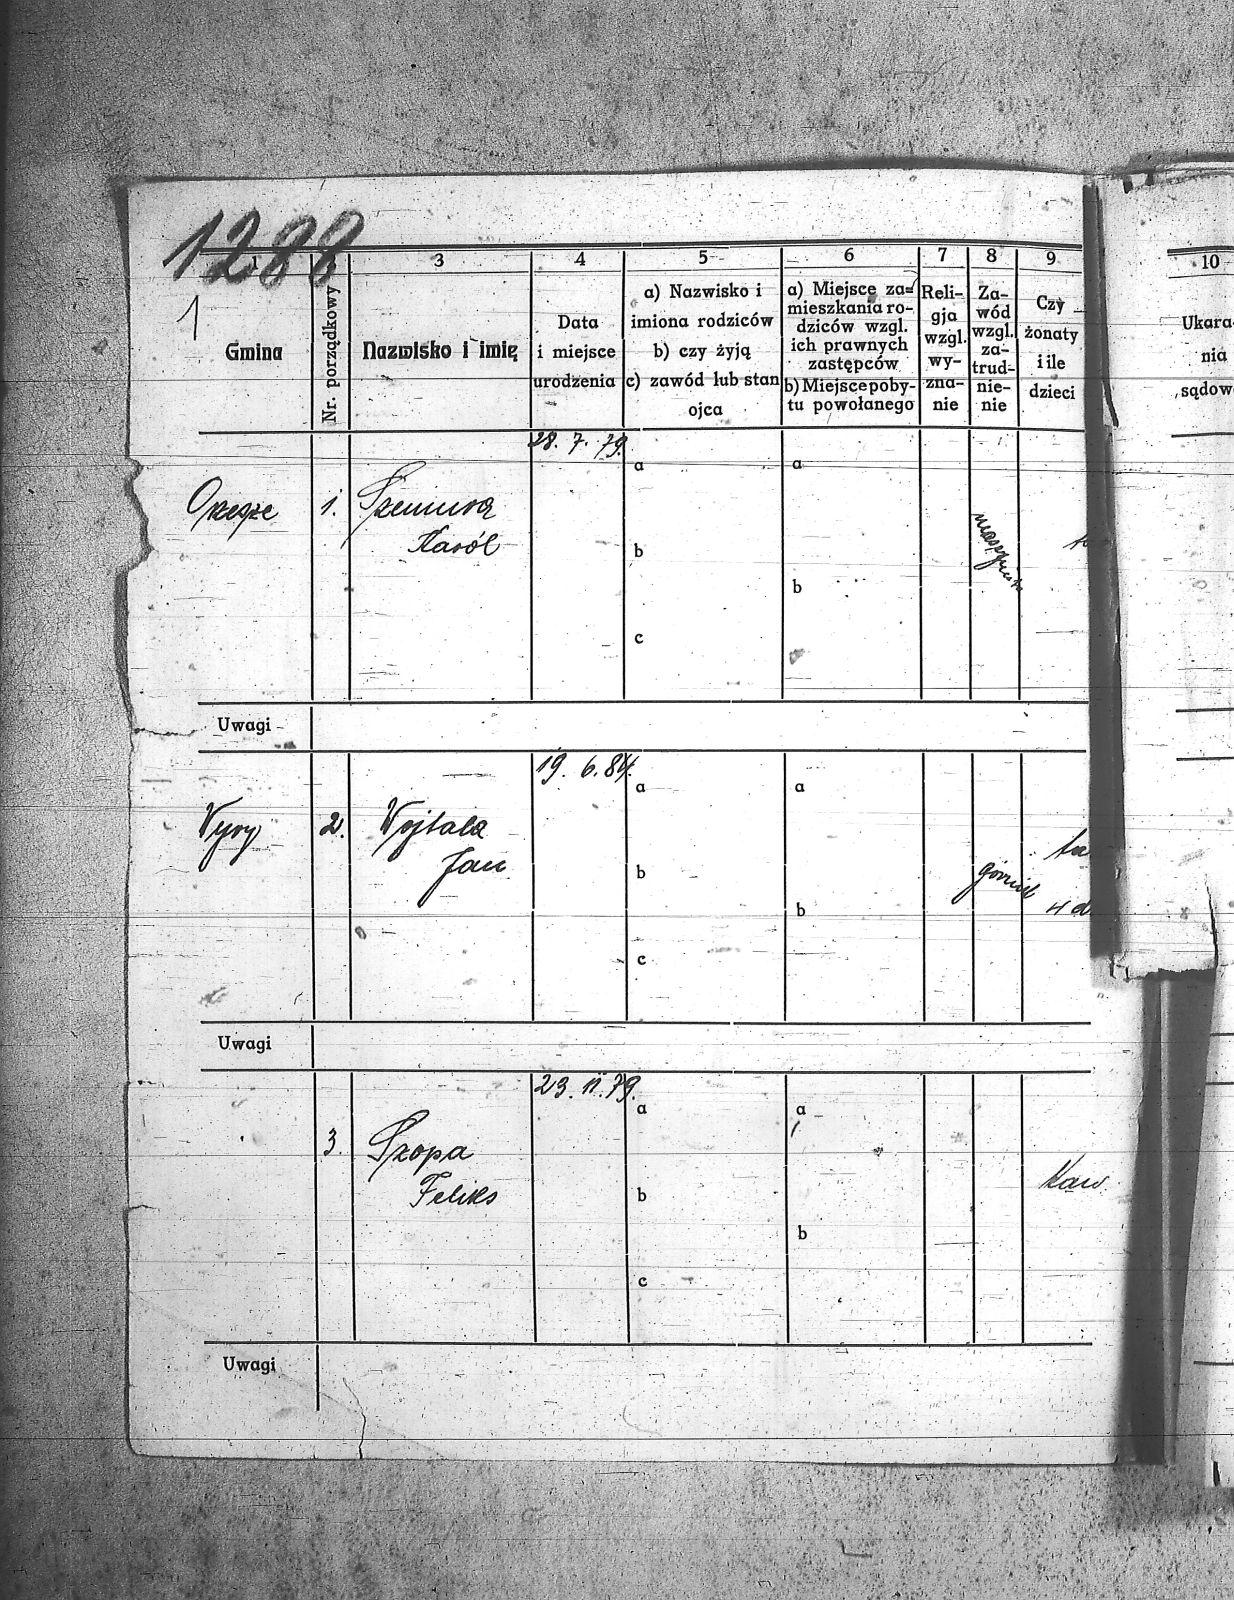 1288
1
1 3 4 5 6 7 8 9 10
Gmina
Nr. porządkowy
Nazwisko i imię
Data
i miejsce
urodzenia
a) Nazwisko i
imiona rodziców
b) czy żyją
c) zawód lub stan
ojca
a) Miejsce za-
mieszkania ro-
dziców wzgl.
ich prawnych
zastępców
b) Miejsce poby-
tu powołanego
Reli-
gja
wzgl.
wy-
zna-
nie
Za-
wód
wzgl.
za-
trud-
nie-
nie
Czy
żonaty
i ile
dzieci
Ukara-
nia
sądow
28. 7. 79.
Orzesze 1.
Karól
a
b
c
a
b
Uwagi
19. 6. 84.
Wyry 2. Wojtala
Jan
a
b
c
a
b
górnik
4 d
Uwagi
23. 11. 79.
3. Szopa
Feliks
a
b
c
a
b
Kaw
Uwagi